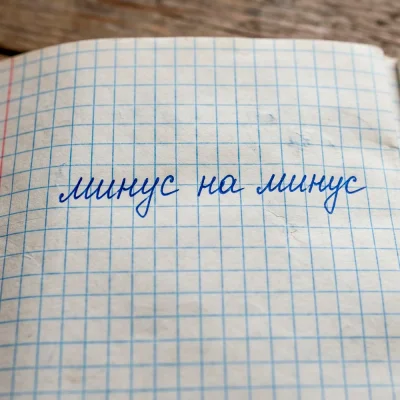 минус на минус